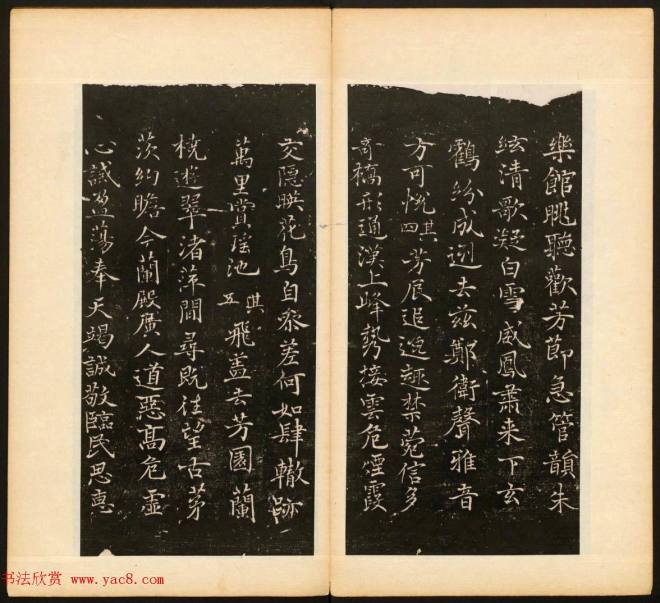 樂館眺聽歡芳節急管韻朱
絃清歌凝白雪威鳳肅来下玄
鶴紛成列去茲鄭衛聲雅音
方可悦其四芳辰追逸趣禁苑信多
奇橋形通漢上峰勢接雲危煙霞
交隱暎花鳥自参差何如肆轍跡
萬里賞瑶池其五飛盖去芳園蘭
橈遊翠渚萍間尋既往望古茅
茨約瞻今蘭殿廣人道惡高危虚
心誡盈蕩奉天竭誠敬臨民思惠
书法欣赏 www.yac8.com